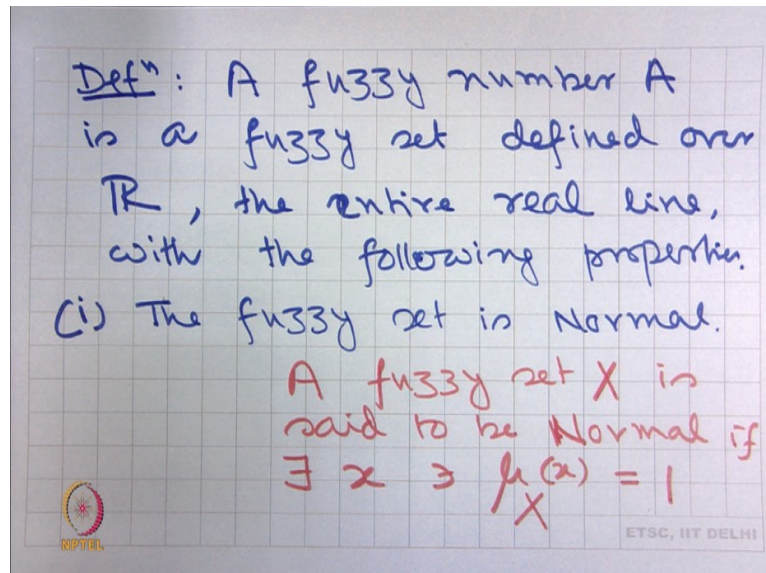 Defⁿ: A fuzzy number A
is a fuzzy set defined over
ℝ, the entire real line,
with the following properties.
(i) The fuzzy set is Normal.
A fuzzy set X is
said to be Normal if
∃ x ∋ μ_X(x) = 1
NPTEL
ETSC, IIT DELHI